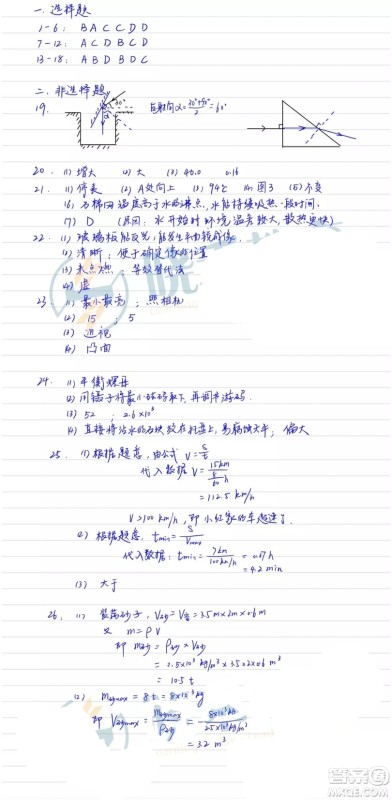 一. 选择题
1-6: B A C C D D
7-12: A C D B C D
13-18: A B D B D C
二. 非选择题
19. 30° α 且射向α=(30°+90°)/2=60°
20. (1) 增大 (2) 大 (3) 40.0 0.16
21. (1) 停表 (2) A处向上 (3) 94℃ (4) 图3 (5) 不变
(6) 石棉网温度高于水的沸点, 水能持续吸热一段时间.
(7) D (原因: 水开始时环境温差较大, 散热更快)
22. (1) 玻璃板能反光, 能发生平面镜成像
(2) 清晰; 便于确定像的位置
(3) 未点燃; 等效替代法
(4) 虚
23. (1) 最小最亮; 照相机
(2) 15 ; 5
(3) 近视
(4) 凸面
24. (1) 平衡螺母
(2) 用镊子将最小砝码取下, 再调节游码.
(3) 52 ; 2.6×10³
(4) 直接将沾水的石块放在托盘上, 易腐蚀天平; 偏大
25. (1) 根据题意, 由公式 V=s/t
代入数据 V=15km/(8/60 h)
=112.5 km/h
V>100 km/h, 即小红家的车超速了.
(2) 根据题意, tmin=s/Vmax
代入数据: tmin=7km/100km/h=0.07h
=4.2 min
(3) 大于
26. (1) 装满砂子, V砂=V容=3.5m×2m×0.6m
又 m=ρV
即 m砂=ρ砂×V砂
=2.5×10³ kg/m³×3.5×2×0.6 m³
=10.5 t
(2) m砂max=8t=8×10³kg
即 V砂max=m砂max/ρ砂=8×10³kg/2.5×10³kg/m³
=3.2 m³
答案圈